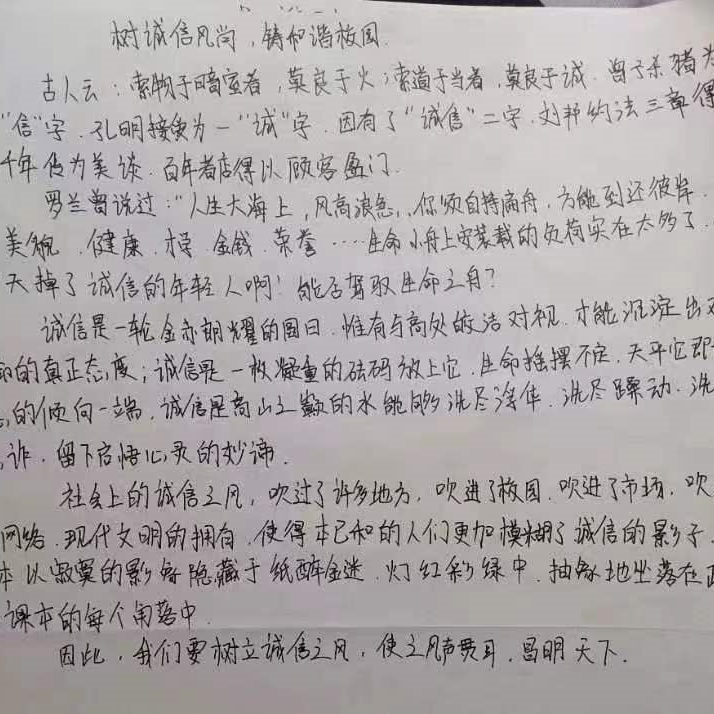 树诚信风尚，铸和谐校园.
古人云：索物于暗室者，莫良于火；索道于当者，莫良于诚.曾子杀猪为
"信"字.孔明接受为一"诚"字.因有了"诚信"二字.刘邦约法三章得
千年传为美谈.百年老店得以顾客盈门.
罗兰曾说过："人生大海上，风高浪急，你须自持扁舟，方能到还彼岸.
美貌.健康.才.金钱.荣誉……生命小舟上安装载的负荷实在太多了.
天掉了诚信的年轻人啊！能否驾驭生命之舟？
诚信是一轮金赤朗耀的圆日.惟有与高处皎洁对视.才能沉淀出对
命的真正态度；诚信是一枚凝重的砝码放上它.生命摇摆不定.天平它即
的倾向一端.诚信是高山之巅的水能够洗尽浮华.洗尽躁动.洗
诈.留下启悟心灵的妙谛.
社会上的诚信之风，吹过了许多地方，吹进了校园.吹进了市场.吹
网络.现代文明的拥有.使得本已和的人们更加模糊了诚信的影子.
本以寂寞的影像隐藏于纸醉金迷.灯红彩绿中.抽象地坐落在
课本的每个角落中.
因此，我们要树立诚信之风，使之风声贯耳.昌明天下.